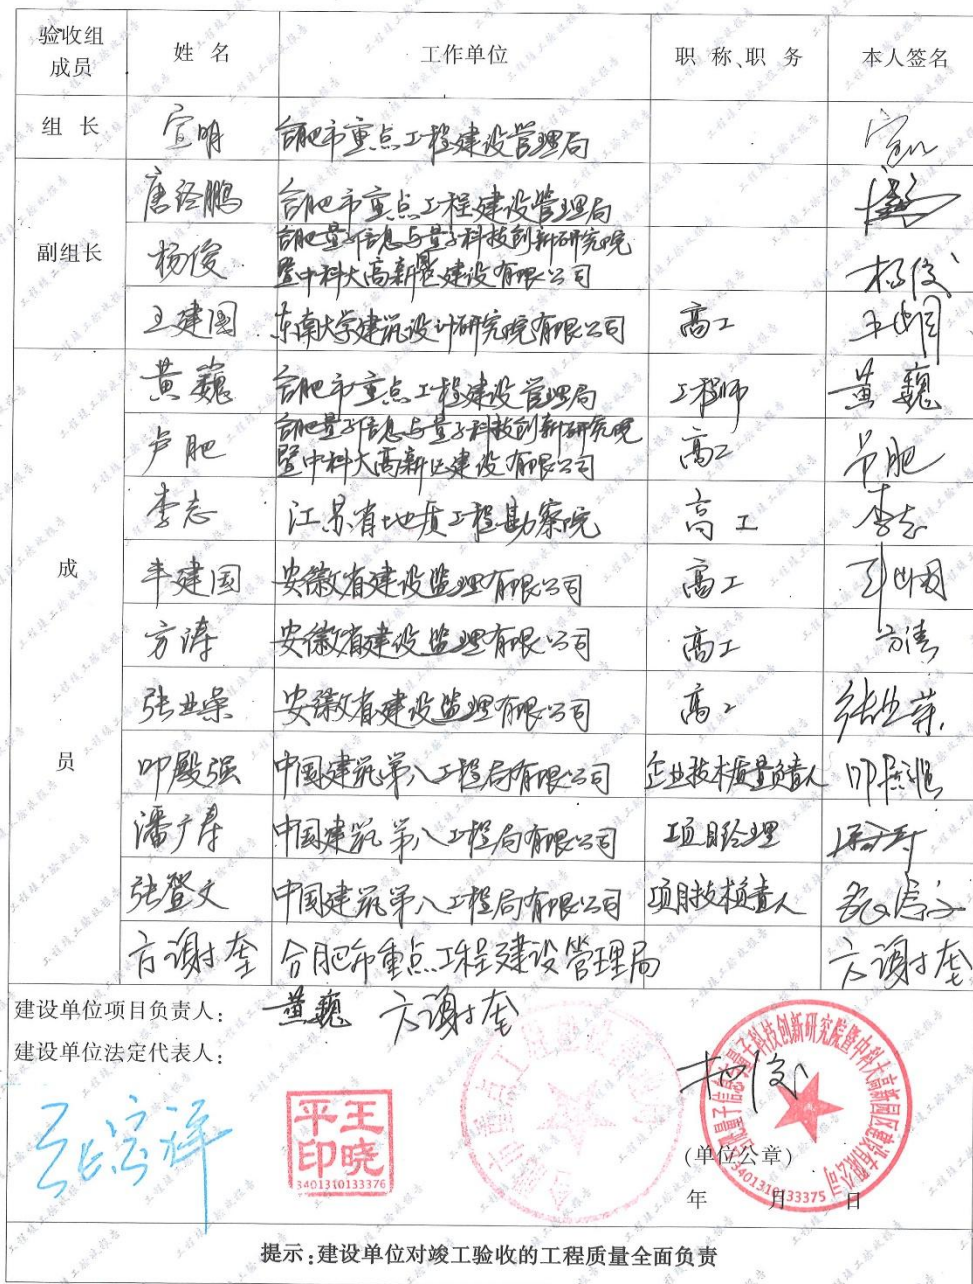 验收组成员 姓 名 工作单位 职 称、职 务 本人签名
组 长 宣明 合肥市重点工程建设管理局
副组长 唐经鹏 合肥市重点工程建设管理局
杨俊 合肥量子信息与量子科技创新研究院
暨中科大高新园区建设有限公司 杨俊
王建国 东南大学建筑设计研究院有限公司 高工
成 员 黄巍 合肥市重点工程建设管理局 工程师 黄巍
卢肥 合肥量子信息与量子科技创新研究院
暨中科大高新区建设有限公司 高工
李志 江苏省地质工程勘察院 高工 李志
丰建国 安徽省建设监理有限公司 高工
方涛 安徽省建设监理有限公司 高工 方涛
张业荣 安徽省建设监理有限公司 高工 张业荣
叩殿强 中国建筑第八工程局有限公司 企业技术质量负责人
潘广寿 中国建筑第八工程局有限公司 项目经理
张登文 中国建筑第八工程局有限公司 项目技术负责人
方谢奎 合肥市重点工程建设管理局 方谢奎
建设单位项目负责人: 黄巍 方谢奎
建设单位法定代表人:
杨俊
王晓平印
3401310133376
合肥量子信息与量子科技创新研究院暨中科大高新园区建设有限公司
3401310133375
(单位公章)
年 月 日
提示:建设单位对竣工验收的工程质量全面负责
工程竣工验收报告